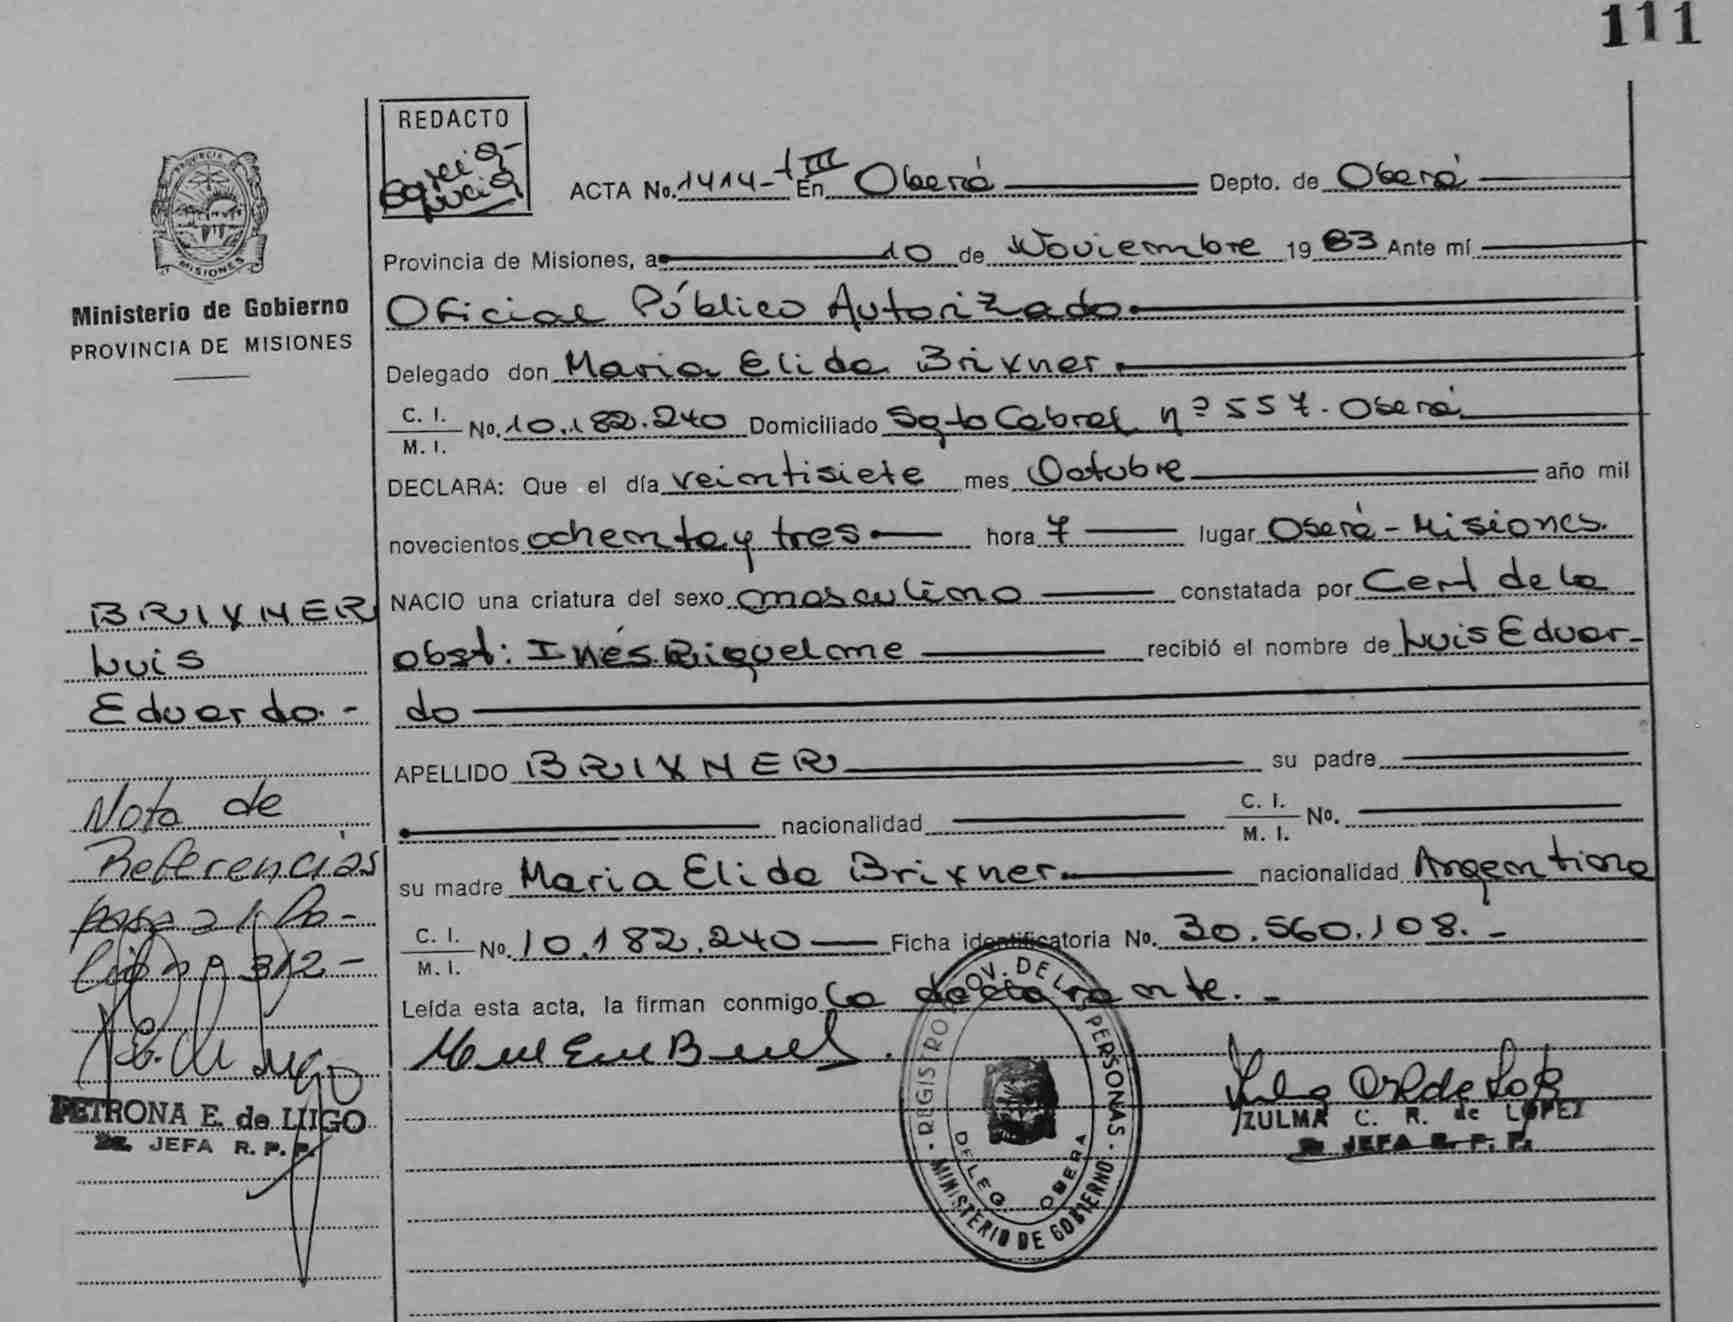 111
REDACTO
ACTA No. 1414-tIII En Oberá Depto. de Oberá
Provincia de Misiones, a 10 de Noviembre 1983 Ante mí
Ministerio de Gobierno
PROVINCIA DE MISIONES
Oficial Público Autorizado
Delegado don Maria Elida Brixner
C. I.
M. I. No. 10.182.240 Domiciliado Sgto Cabral nº 557. Oberá
DECLARA: Que el día veintisiete mes Octubre año mil
novecientos ochenta y tres hora 7 lugar Oberá - Misiones.
NACIO una criatura del sexo masculino constatada por Cert de la
obst: Inés Riquelme recibió el nombre de Luis Eduar-
do
APELLIDO BRIXNER su padre
nacionalidad C. I.
M. I. No.
su madre Maria Elida Brixner nacionalidad Argentina
C. I.
M. I. No. 10.182.240 Ficha identificatoria No. 30.560.108.-
Leída esta acta, la firman conmigo la declarante.-
BRIXNER
Luis
Eduardo.-
Nota de
Referencias
pasa al fo-
lio nº 312-
PETRONA E. de LUGO
2a. JEFA R. P. P.
REGISTRO PROV. DE LAS PERSONAS
MINISTERIO DE GOBIERNO
DELEG OBERA
ZULMA C. R. de LOPEZ
JEFA R. P. P.
PROVINCIA DE
MISIONES